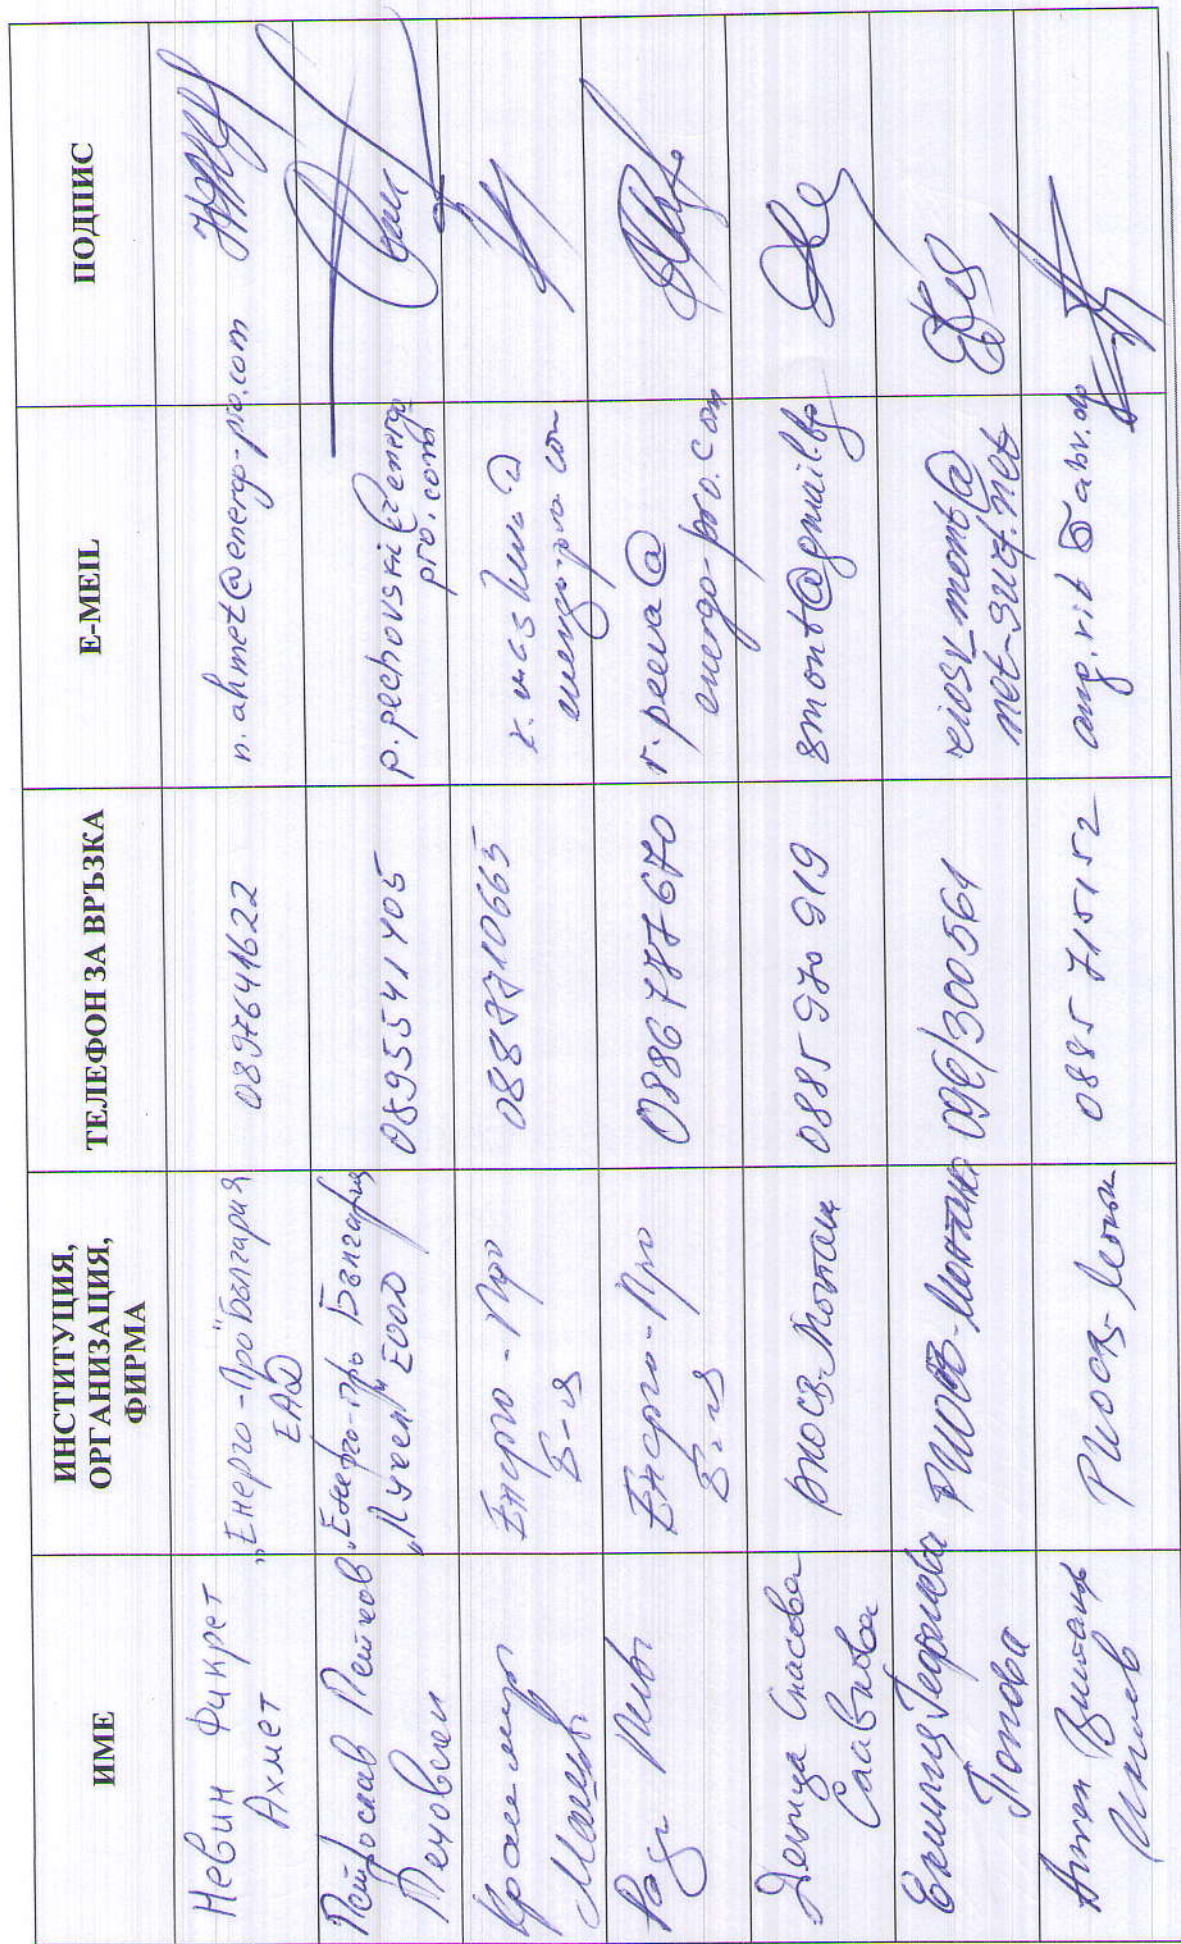 ИМЕ
ИНСТИТУЦИЯ,
ОРГАНИЗАЦИЯ,
ФИРМА
ТЕЛЕФОН ЗА ВРЪЗКА
E-MEIL
ПОДПИС
Невин Фикрет
Ахмет
„Енерго-Про България"
ЕАД
0897641622
n.ahmet@energo-pro.com
Петрослав Петков
Печовски
„Енерго-Про България
ЕООД
0895541405
p.pechovski@energo
pro.com
Красимир
Енерго-Про
Б-я
energo-pro com
Енерго-Про
Б-я
0886777670
r.peeva@
energo-pro.com
Деница Спасова
РИОСВ-Монтана
0885 970 919
smont@gmail.bg
Емилия Георгиева
Попова
РИОСВ-Монтана
096/300561
riosv_mont@
net-surf.net
РИОСВ-Монтана
0885 715152